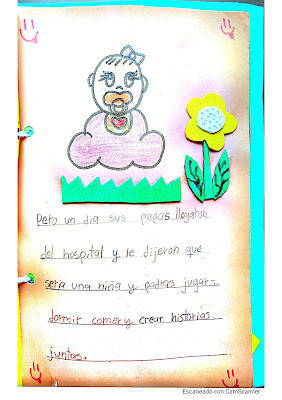 Pero un dia sus papas llegaron
del hospital y le dijeron que
seria una niña y podras jugar-
dormir comer y crear historias
juntas.
Escaneado con CamScanner